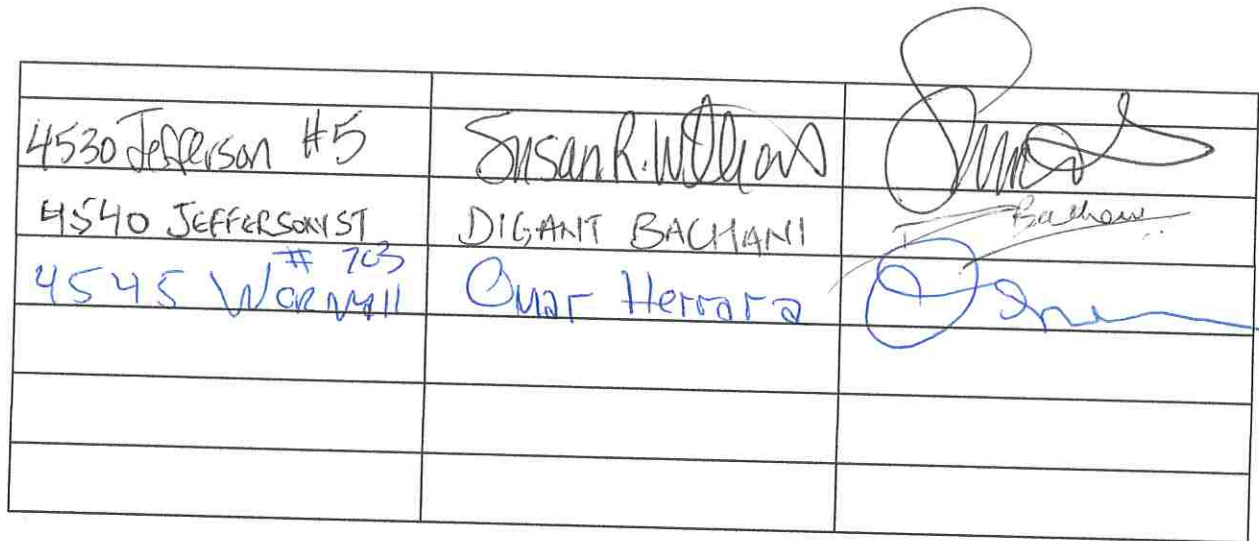 4530 Jefferson #5 Susan R. Williams
4540 JEFFERSON ST DIGANT BACHANI Bachani
# 703
4545 WORNALL Omar Herrara